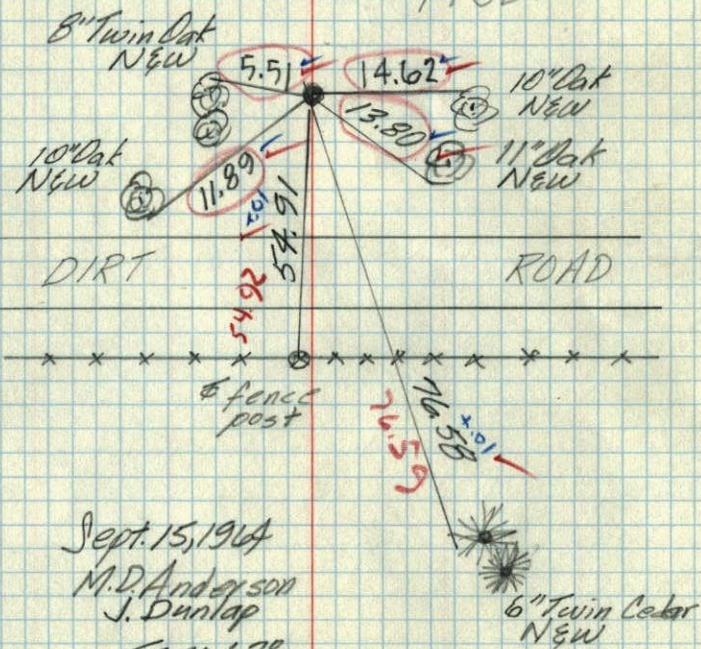 8" Twin Oak
N&W
5.51
14.62
10" Oak
N&W
13.80
11" Oak
N&W
10" Oak
N&W
11.89
x.01
54.91
54.92
DIRT ROAD
℄ fence
post
76.58
x.01
76.59
Sept. 15, 1964
M.D. Anderson
J. Dunlap
6" Twin Cedar
N&W